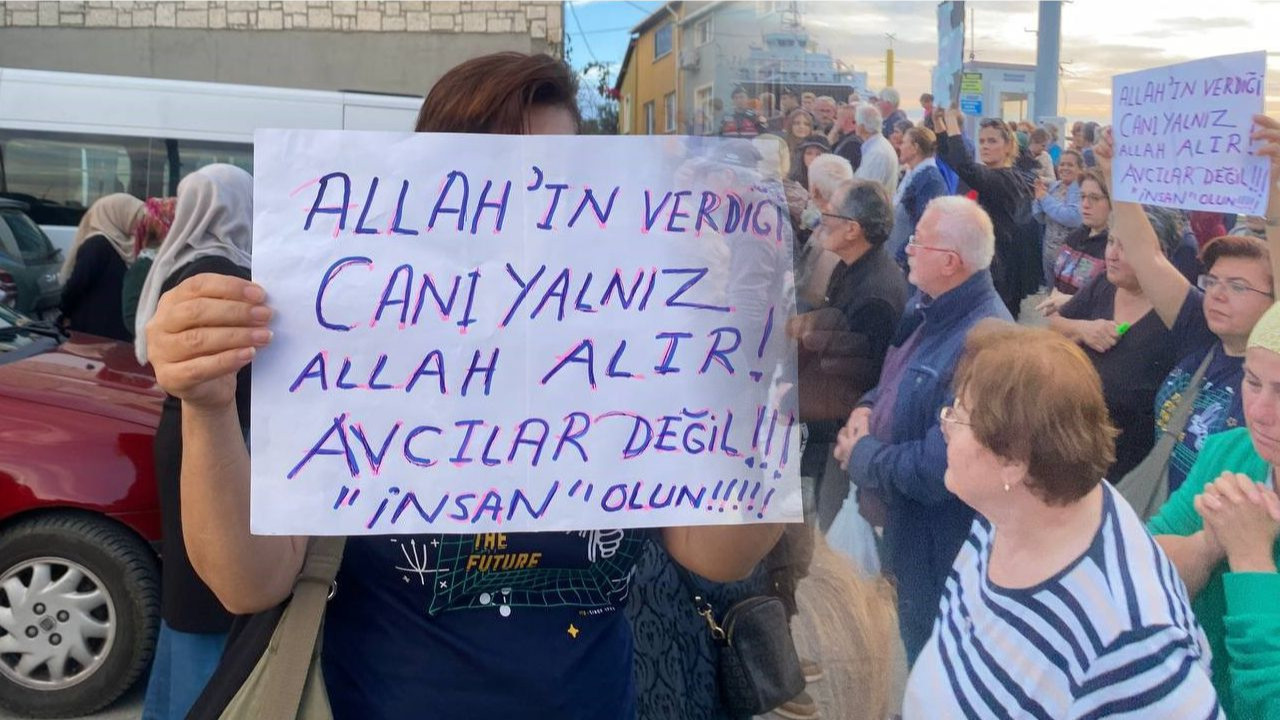 ALLAH'IN VERDİĞİ
CANI YALNIZ
ALLAH ALIR!
AVCILAR DEĞİL!!!
"İNSAN" OLUN!!!!!
THE
FUTURE
ALLAH'IN VERDİĞİ
CANI YALNIZ
ALLAH ALIR!
AVCILAR DEĞİL!!!
"İNSAN" OLUN!!!!!